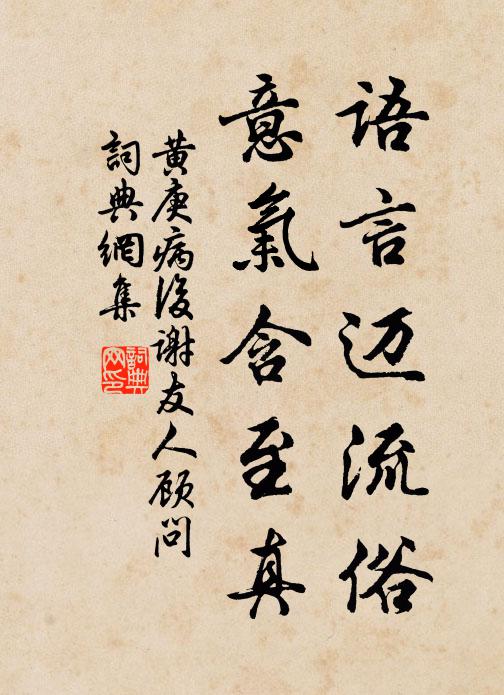 语言迈流俗
意氣含至真
黄庚病後谢友人顾问
詞典網集
詞典网印